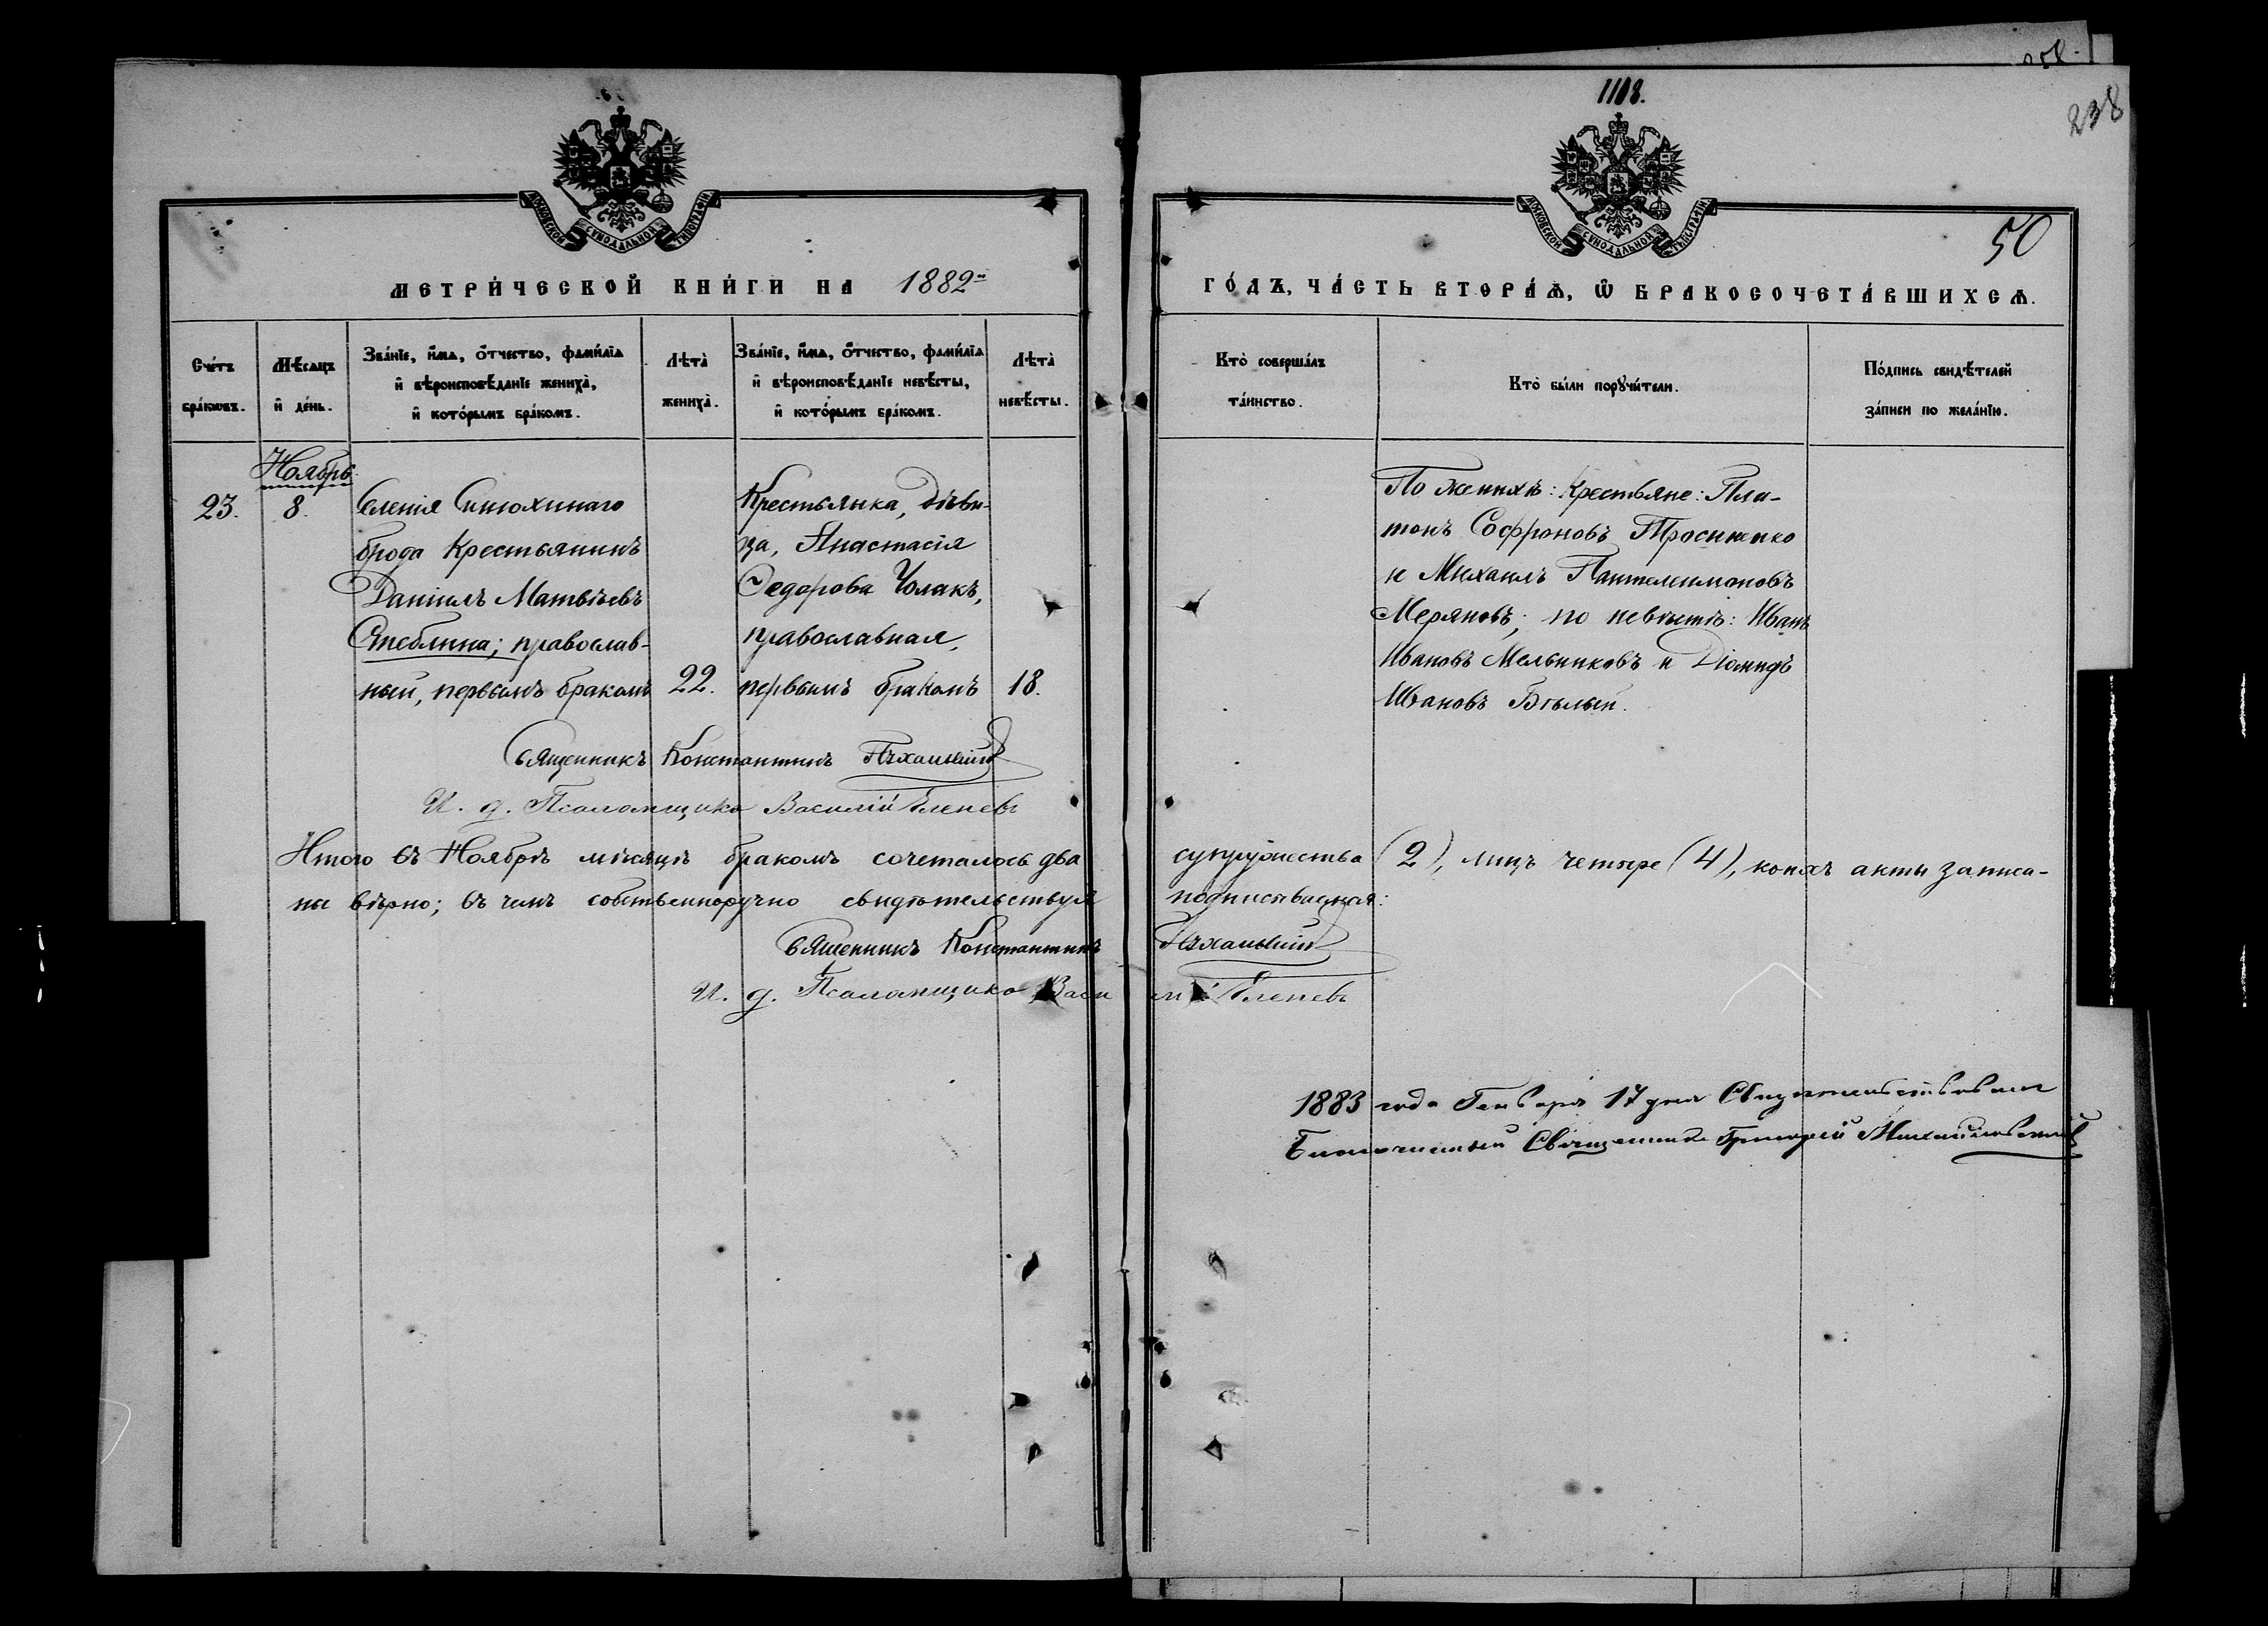 1108.
238
50
МОСКОВСКОЙ СѴНОДАЛЬНОЙ ТИПОГРАФІИ
МОСКОВСКОЙ СѴНОДАЛЬНОЙ ТИПОГРАФІИ
МЕТРИ́ЧЕСКОЙ КНИ́ГИ НА 1882-
ГО́ДЪ, ЧА́СТЬ ВТОРА́Ѧ, Ѽ БРАКОСОЧЕТА́ВШИХСѦ.
Сче́тъ
бра́ковъ.
Мѣ́сяцъ
и де́нь.
Зва́нїе, и́мѧ, о́тчество, фами́лїѧ
и вѣроисповѣ́данїе жениха̀,
и кото́рымъ бра́комъ.
Лѣта̀
жениха̀.
Зва́нїе, и́мѧ, о́тчество, фами́лїѧ
и вѣроисповѣ́данїе невѣ́сты,
и кото́рымъ бра́комъ.
Лѣта̀
невѣ́сты.
Кто̀ соверша́лъ
та́инство.
Кто̀ бы́ли порꙋчи́тели.
По́дпись свидѣ́телей
за́писи по жела́нїю.
Ноябрь
23.
8.
Селенія Синюхинаго
брода Крестьянинъ
Даніилъ Матвѣевъ
православ-
ный, первымъ бракомъ
22.
Крестьянка, дѣви-
ца, Анастасія
Федорова Чолакъ,
православная,
первымъ бракомъ
18.
По женихѣ: Крестьяне: Пла-
тонъ Софроновъ
и Михаилъ Пантелеимоновъ
Меряновъ; по невѣстѣ: Иванъ
Ивановъ Мельниковъ и Діомидъ
Ивановъ Бѣлый.
Священникъ Константинъ
И. д. Псаломщика Василій
Итого въ Ноябрѣ мѣсяцѣ бракомъ сочеталось два супружества (2), лицъ четыре (4), коихъ акты записа-
ны вѣрно; въ чемъ собственноручно свидѣтельствуя подписываемся:
Священникъ Константинъ
И. д. Псаломщика Василій
1883 года Генваря 17 дня Свидѣтельствовалъ
Благочинный Священникъ Григорій Михайловскій